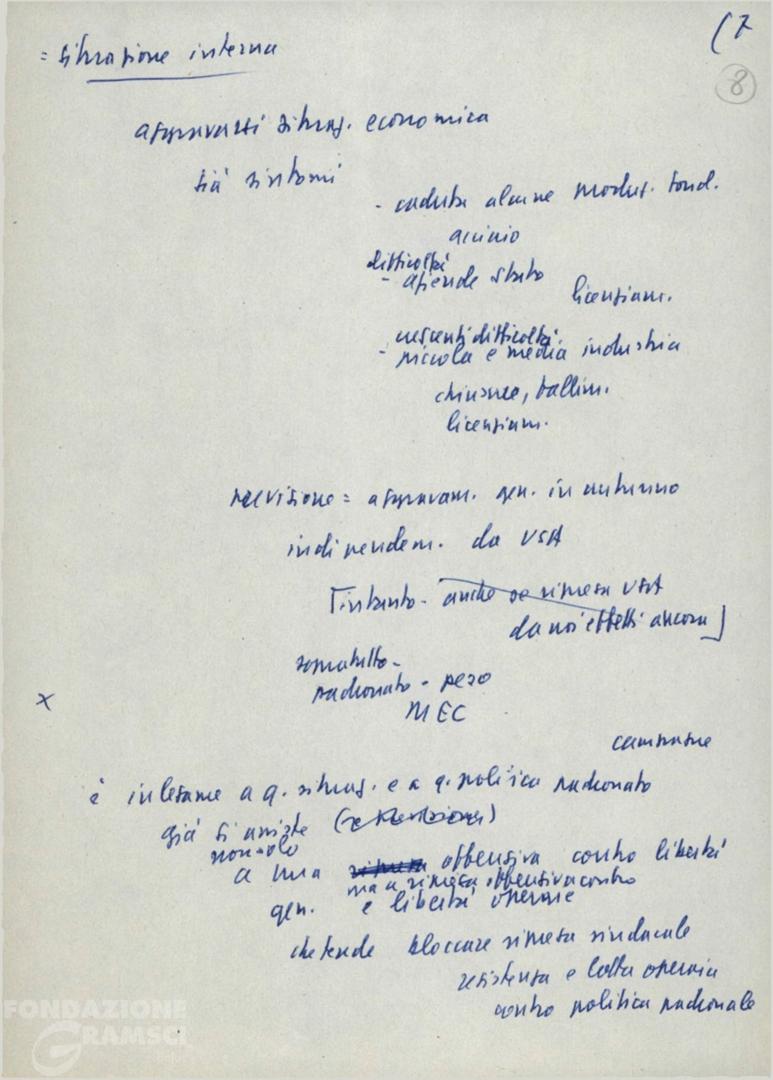 (7
8
= situazione interna
aggravarsi situaz. economica
già sintomi
- caduta alcune produz. fond.
acciaio
difficoltà
- aziende stato
licenziam.
crescenti difficoltà
- piccola e media industria
chiusure, fallim.
licenziam.
previsione = aggravam. gen. in autunno
indipendem. da USA
[intanto - anche se ripresa USA
da noi effetti ancora]
soprattutto -
padronato - peso
MEC
x
campagne
è in legame a q. situaz. e a q. politica padronato
già si assiste
non solo
a una ripresa offensiva contro libertà
ma a ripresa offensiva contro
gen. e libertà operaie
che tende bloccare ripresa sindacale
resistenza e lotta operaia
contro politica padronale
FONDAZIONE
GRAMSCI